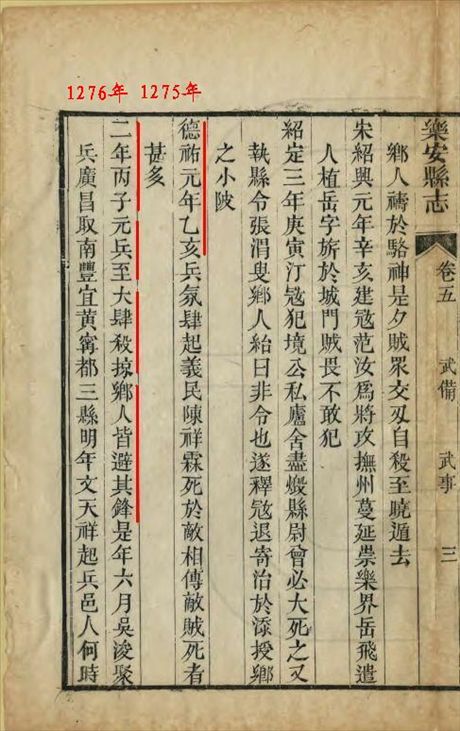 1276年 1275年
樂安縣志 卷五 武備 武事 三
鄉人禱於駱神是夕賊眾交刄自殺至曉遁去
宋紹興元年辛亥建寇范汝爲將攻撫州蔓延崇樂界岳飛遣
人植岳字旂於城門賊畏不敢犯
紹定三年庚寅汀寇犯境公私廬舍盡燬縣尉曾必大死之又
執縣令張渭叟鄉人紿曰非令也遂釋寇退寄治於添授鄉
之小陂
德祐元年乙亥兵氛肆起義民陳祥霖死於敵相傳敵賊死者
甚多
二年丙子元兵至大肆殺掠鄉人皆避其鋒是年六月吳浚聚
兵廣昌取南豐宜黃甯都三縣明年文天祥起兵邑人何時